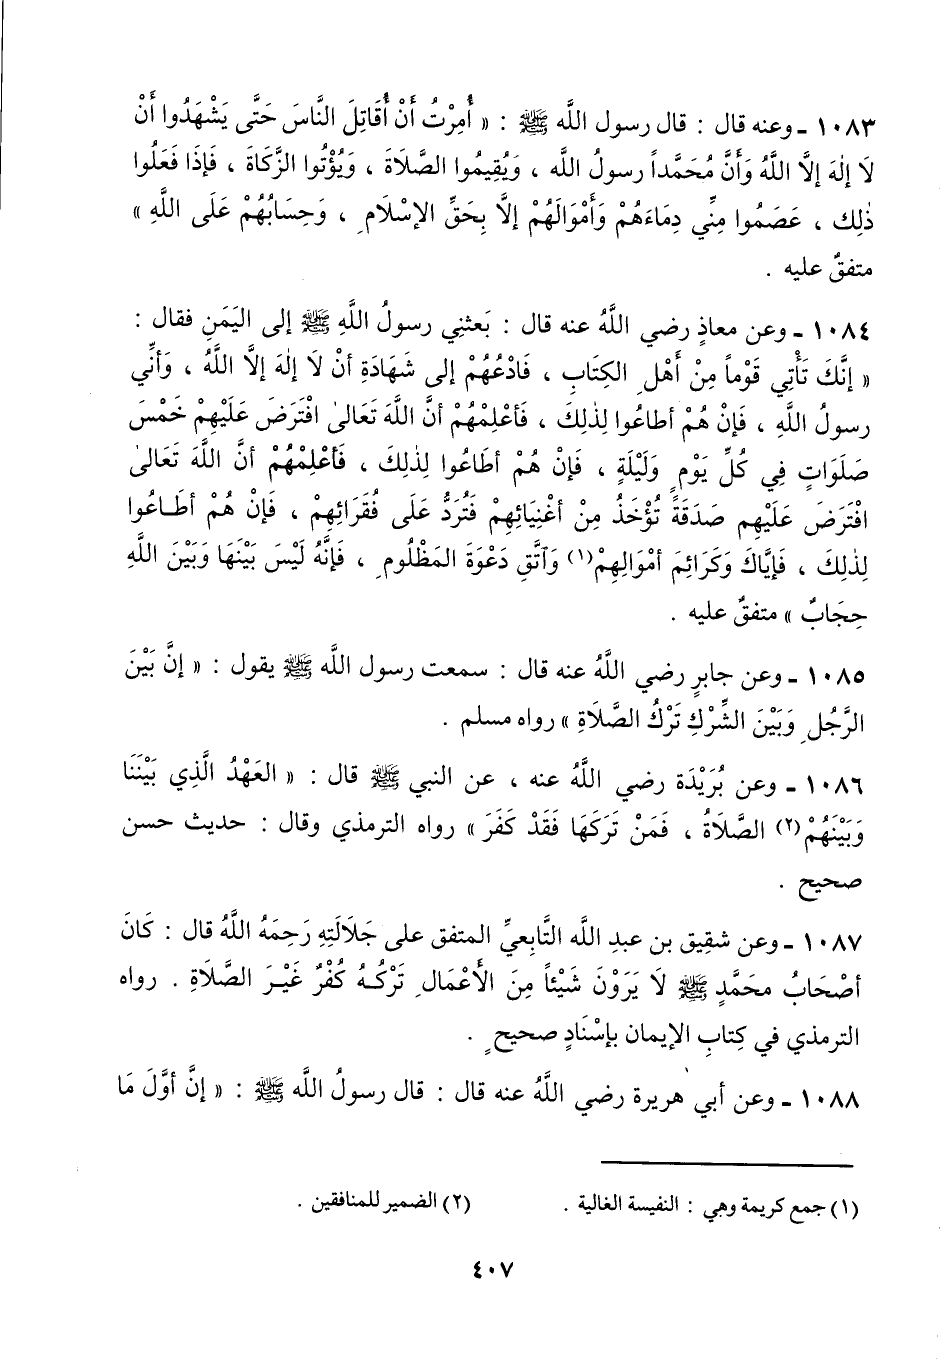 ١٠٨٣ - وعنه قال : قال رسول الله ﷺ : « أُمِرْتُ أَنْ أُقَاتِلَ النَّاسَ حَتَّى يَشْهَدُوا أَنْ
لَا إِلٰهَ إِلَّا اللَّهُ وَأَنَّ مُحَمَّداً رسولُ الله ، وَيُقِيمُوا الصَّلَاةَ ، وَيُؤْتُوا الزَّكَاةَ ، فَإِذَا فَعَلُوا
ذٰلِكَ ، عَصَمُوا مِنِّي دِمَاءَهُمْ وَأَمْوَالَهُمْ إِلَّا بِحَقِّ الإِسْلَامِ ، وَحِسَابُهُمْ عَلَى اللَّهِ »
متفقٌ عليه .
١٠٨٤ - وعن معاذٍ رضي اللَّهُ عنه قال : بَعثنِي رسولُ اللَّهِ ﷺ إلى اليَمَنِ فقال :
« إِنَّكَ تَأْتِي قَوْماً مِنْ أَهْلِ الكِتَابِ ، فَادْعُهُمْ إلى شَهَادَةِ أَنْ لَا إِلٰهَ إِلَّا اللَّهُ ، وَأَنِّي
رسولُ اللَّهِ ، فَإِنْ هُمْ أطاعُوا لِذٰلِكَ ، فَأَعْلِمْهُمْ أنَّ اللَّهَ تَعَالَىٰ افْتَرَضَ عَلَيْهِمْ خَمْسَ
صَلَوَاتٍ فِي كُلِّ يَوْمٍ وَلَيْلَةٍ ، فَإِنْ هُمْ أطَاعُوا لِذٰلِكَ ، فَأَعْلِمْهُمْ أنَّ اللَّهَ تَعَالَىٰ
افْتَرَضَ عَلَيْهِم صَدَقَةً تُؤْخَذُ مِنْ أَغْنِيَائِهِمْ فَتُرَدُّ عَلَى فُقَرَائِهِمْ ، فَإِنْ هُمْ أطَـاعُوا
لِذٰلِكَ ، فَإِيَّاكَ وَكَرَائِمَ أمْوَالِهِمْ(١) وَاتَّقِ دَعْوَةَ المَظْلُومِ ، فَإِنَّهُ لَيْسَ بَيْنَهَا وَبَيْنَ اللَّهِ
حِجَابٌ » متفقٌ عليه .
١٠٨٥ - وعن جابرٍ رضي اللَّهُ عنه قال : سمعت رسول الله ﷺ يقول : « إنَّ بَيْنَ
الرَّجُلِ وَبَيْنَ الشِّرْكِ تَرْكُ الصَّلَاةِ » رواه مسلم .
١٠٨٦ - وعن بُرَيْدَةَ رضي اللَّهُ عنه ، عن النبي ﷺ قال : « العَهْدُ الَّذِي بَيْنَنَا
وَبَيْنَهُمْ(٢) الصَّلَاةُ ، فَمَنْ تَرَكَهَا فَقَدْ كَفَرَ » رواه الترمذي وقال : حديث حسن
صحيح .
١٠٨٧ - وعن شقِيق بن عبدِ الله التَّابعيِّ المتفق على جَلَالَتِهِ رَحِمَهُ اللَّهُ قال : كَانَ
أَصْحَابُ محَمَّدٍ ﷺ لَا يَرَوْنَ شَيْئاً مِنَ الأَعْمَالِ تَرْكُـهُ كُفْرٌ غَيْـرَ الصَّلَاةِ . رواه
الترمذي في كِتابِ الإيمان بإسْنَادٍ صحيحٍ .
١٠٨٨ - وعن أبي هريرة رضي اللَّهُ عنه قال : قال رسولُ الله ﷺ : « إنَّ أوَّلَ مَا
(١) جمع كريمة وهي : النفيسة الغالية .
(٢) الضمير للمنافقين .
٤٠٧